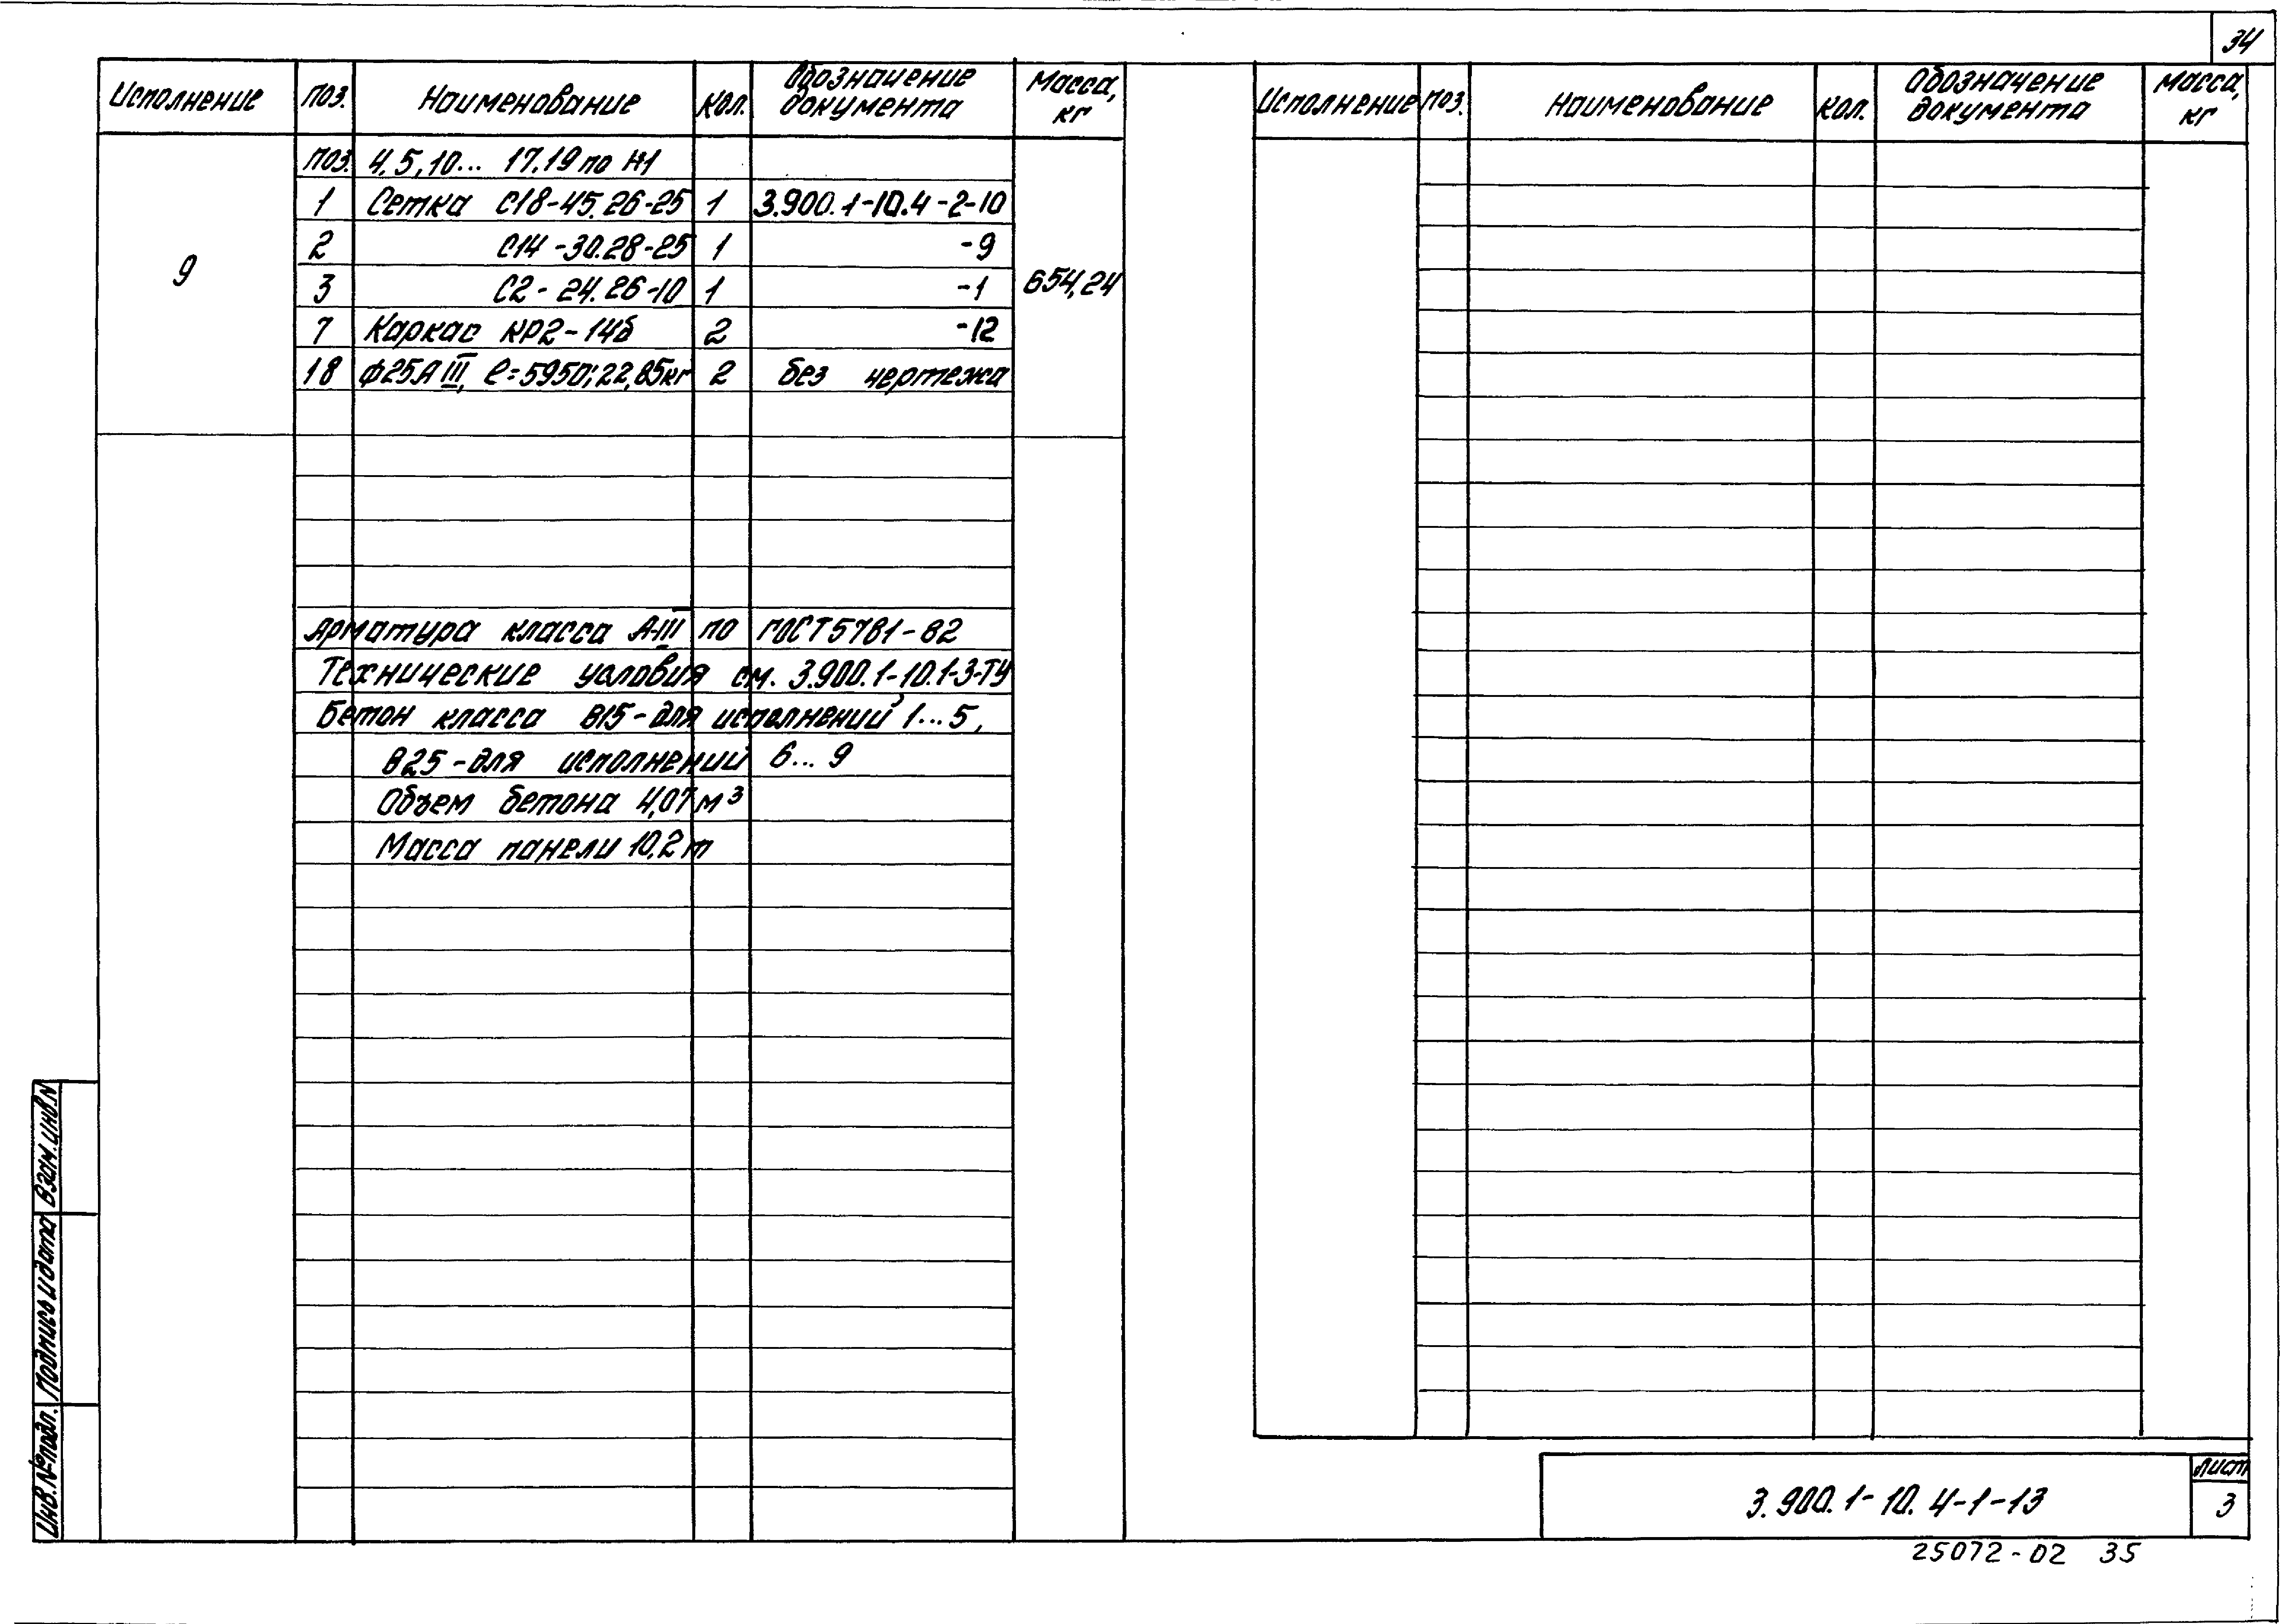 34
Исполнение Поз. Наименование Кол. Обозначение документа Масса, кг
Поз. 4, 5, 10... 17, 19 по И1
9
1 Сетка С18-45.26-25 1 3.900.1-10.4-2-10
2 С14-30.28-25 1 -9
3 С2-24.26-10 1 -1
654,24
7 Каркас КР2-14б 2 -12
18 ф25АIII, ℓ=5950; 22,85кг 2 без чертежа
Арматура класса А-III по ГОСТ 5781-82
Технические условия см. 3.900.1-10.1-3-ТУ
Бетон класса В15-для исполнений 1...5,
В25-для исполнений 6...9
Объем бетона 4,07 м³
Масса панели 10,2 т
Исполнение Поз. Наименование Кол. Обозначение документа Масса, кг
Взам. инв. N
Подпись и дата
Инв. № подл.
3.900.1-10.4-1-13
Лист
3
25072-02 35